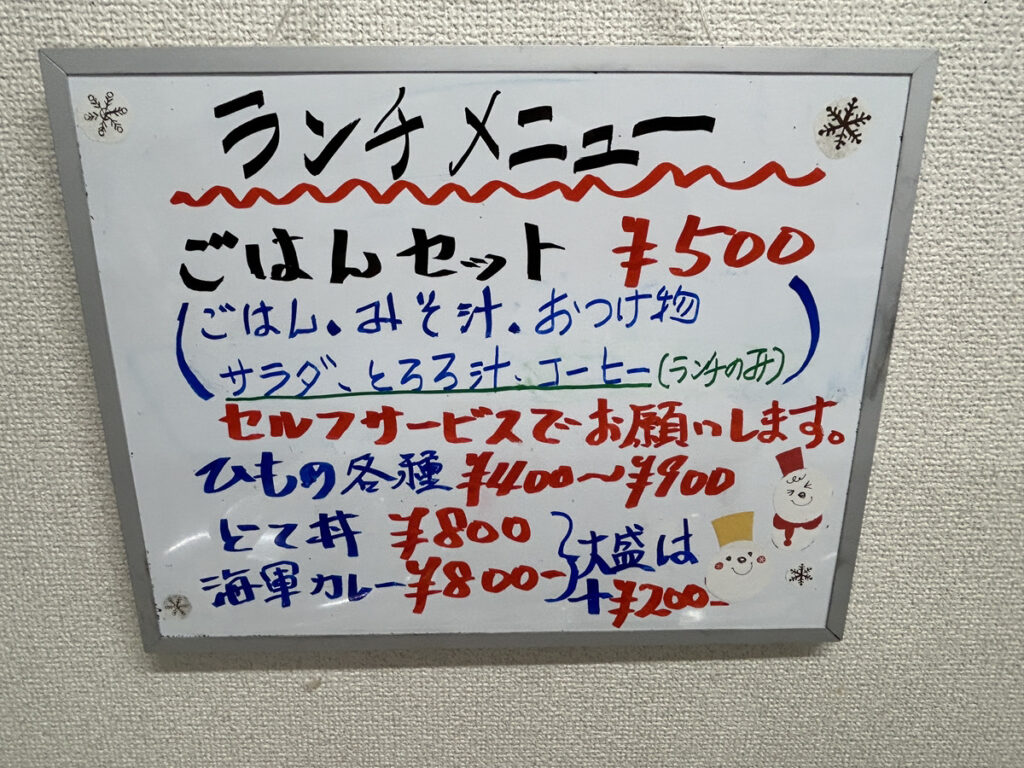 ランチメニュー
ごはんセット ¥500
(ごはん。みそ汁。おつけ物
サラダ、とろろ汁、コーヒー(ランチのみ))
セルフサービスでお願いします。
ひもの各種 ¥400〜¥900
とて丼 ¥800
海軍カレー ¥800-
}大盛は
+¥200-